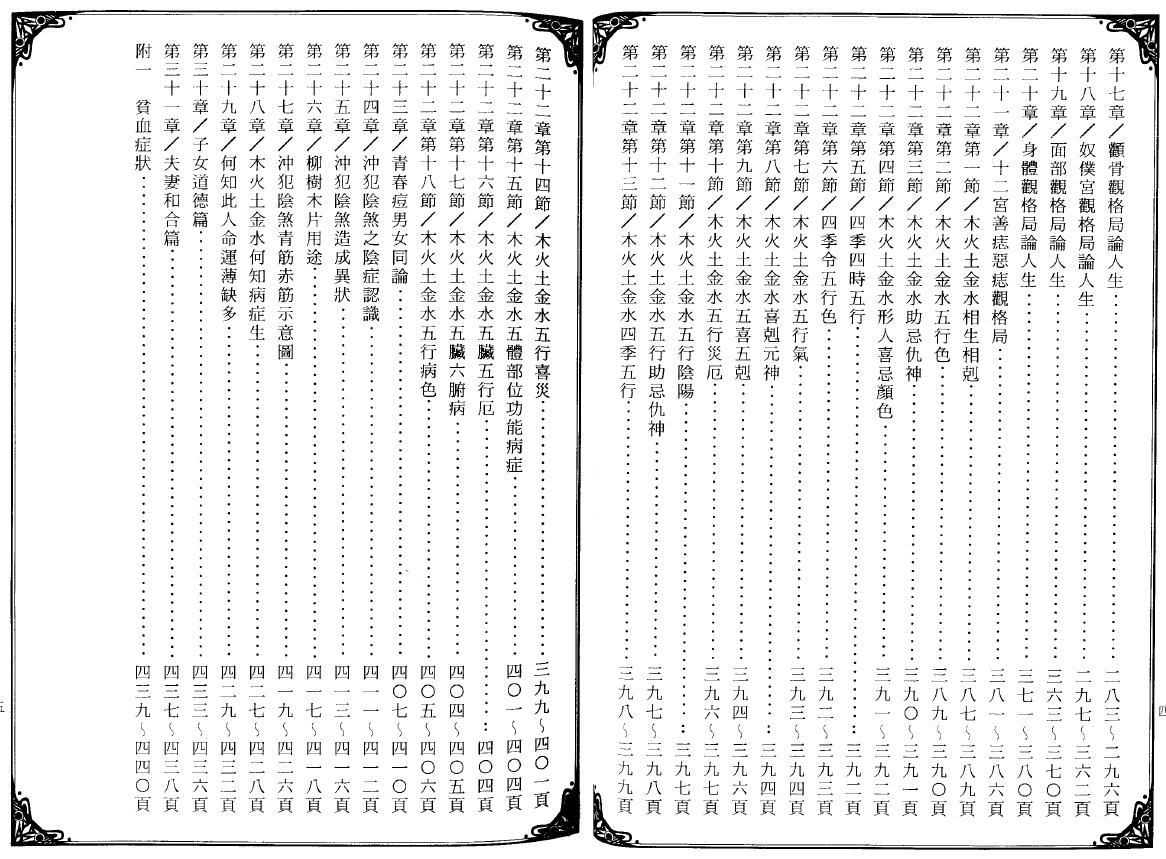 第十七章／顴骨觀格局論人生⋯⋯二八三～二九六頁
第十八章／奴僕宮觀格局論人生⋯⋯二九七～三六二頁
第十九章／面部觀格局論人生⋯⋯三六三～三七〇頁
第二十章／身體觀格局論人生⋯⋯三七一～三八〇頁
第二十一章／十二宮善痣惡痣觀格局⋯⋯三八一～三八六頁
第二十二章第一節／木火土金水相生相剋⋯⋯三八七～三八九頁
第二十二章第二節／木火土金水五行色⋯⋯三八九～三九〇頁
第二十二章第三節／木火土金水助忌仇神⋯⋯三九〇～三九一頁
第二十二章第四節／木火土金水形人喜忌顏色⋯⋯三九一～三九二頁
第二十二章第五節／四季四時五行⋯⋯三九二頁
第二十二章第六節／四季令五行色⋯⋯三九二～三九三頁
第二十二章第七節／木火土金水五行氣⋯⋯三九三～三九四頁
第二十二章第八節／木火土金水喜剋元神⋯⋯三九四頁
第二十二章第九節／木火土金水五喜五剋⋯⋯三九四～三九六頁
第二十二章第十節／木火土金水五行災厄⋯⋯三九六～三九七頁
第二十二章第十一節／木火土金水五行陰陽⋯⋯三九七頁
第二十二章第十二節／木火土金水五行助忌仇神⋯⋯三九七～三九八頁
第二十二章第十三節／木火土金水四季五行⋯⋯三九八～三九九頁
四
第二十二章第十四節／木火土金水五行喜災⋯⋯三九九～四〇一頁
第二十二章第十五節／木火土金水五體部位功能病症⋯⋯四〇一～四〇四頁
第二十二章第十六節／木火土金水五臟五行厄⋯⋯四〇四頁
第二十二章第十七節／木火土金水五臟六腑病⋯⋯四〇四～四〇五頁
第二十二章第十八節／木火土金水五行病色⋯⋯四〇五～四〇六頁
第二十三章／青春痘男女同論⋯⋯四〇七～四一〇頁
第二十四章／沖犯陰煞之陰症認識⋯⋯四一一～四一二頁
第二十五章／沖犯陰煞造成異狀⋯⋯四一三～四一六頁
第二十六章／柳樹木片用途⋯⋯四一七～四一八頁
第二十七章／沖犯陰煞青筋赤筋示意圖⋯⋯四一九～四二六頁
第二十八章／木火土金水何知病症生⋯⋯四二七～四二八頁
第二十九章／何知此人命運薄缺多⋯⋯四二九～四三二頁
第三十章／子女道德篇⋯⋯四三三～四三六頁
第三十一章／夫妻和合篇⋯⋯四三七～四三八頁
附一　貧血症狀⋯⋯四三九～四四〇頁
五